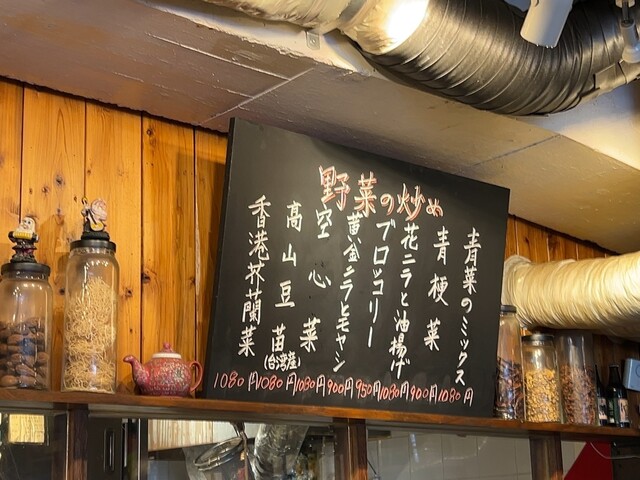 野菜の炒め
青菜のミックス
1080円
青梗菜
900円
花ニラと油揚げ
1080円
ブロッコリー
950円
黄金ニラとモヤシ
900円
空心菜
1080円
高山豆苗
(台湾産)
1080円
香港芥蘭菜
1080円